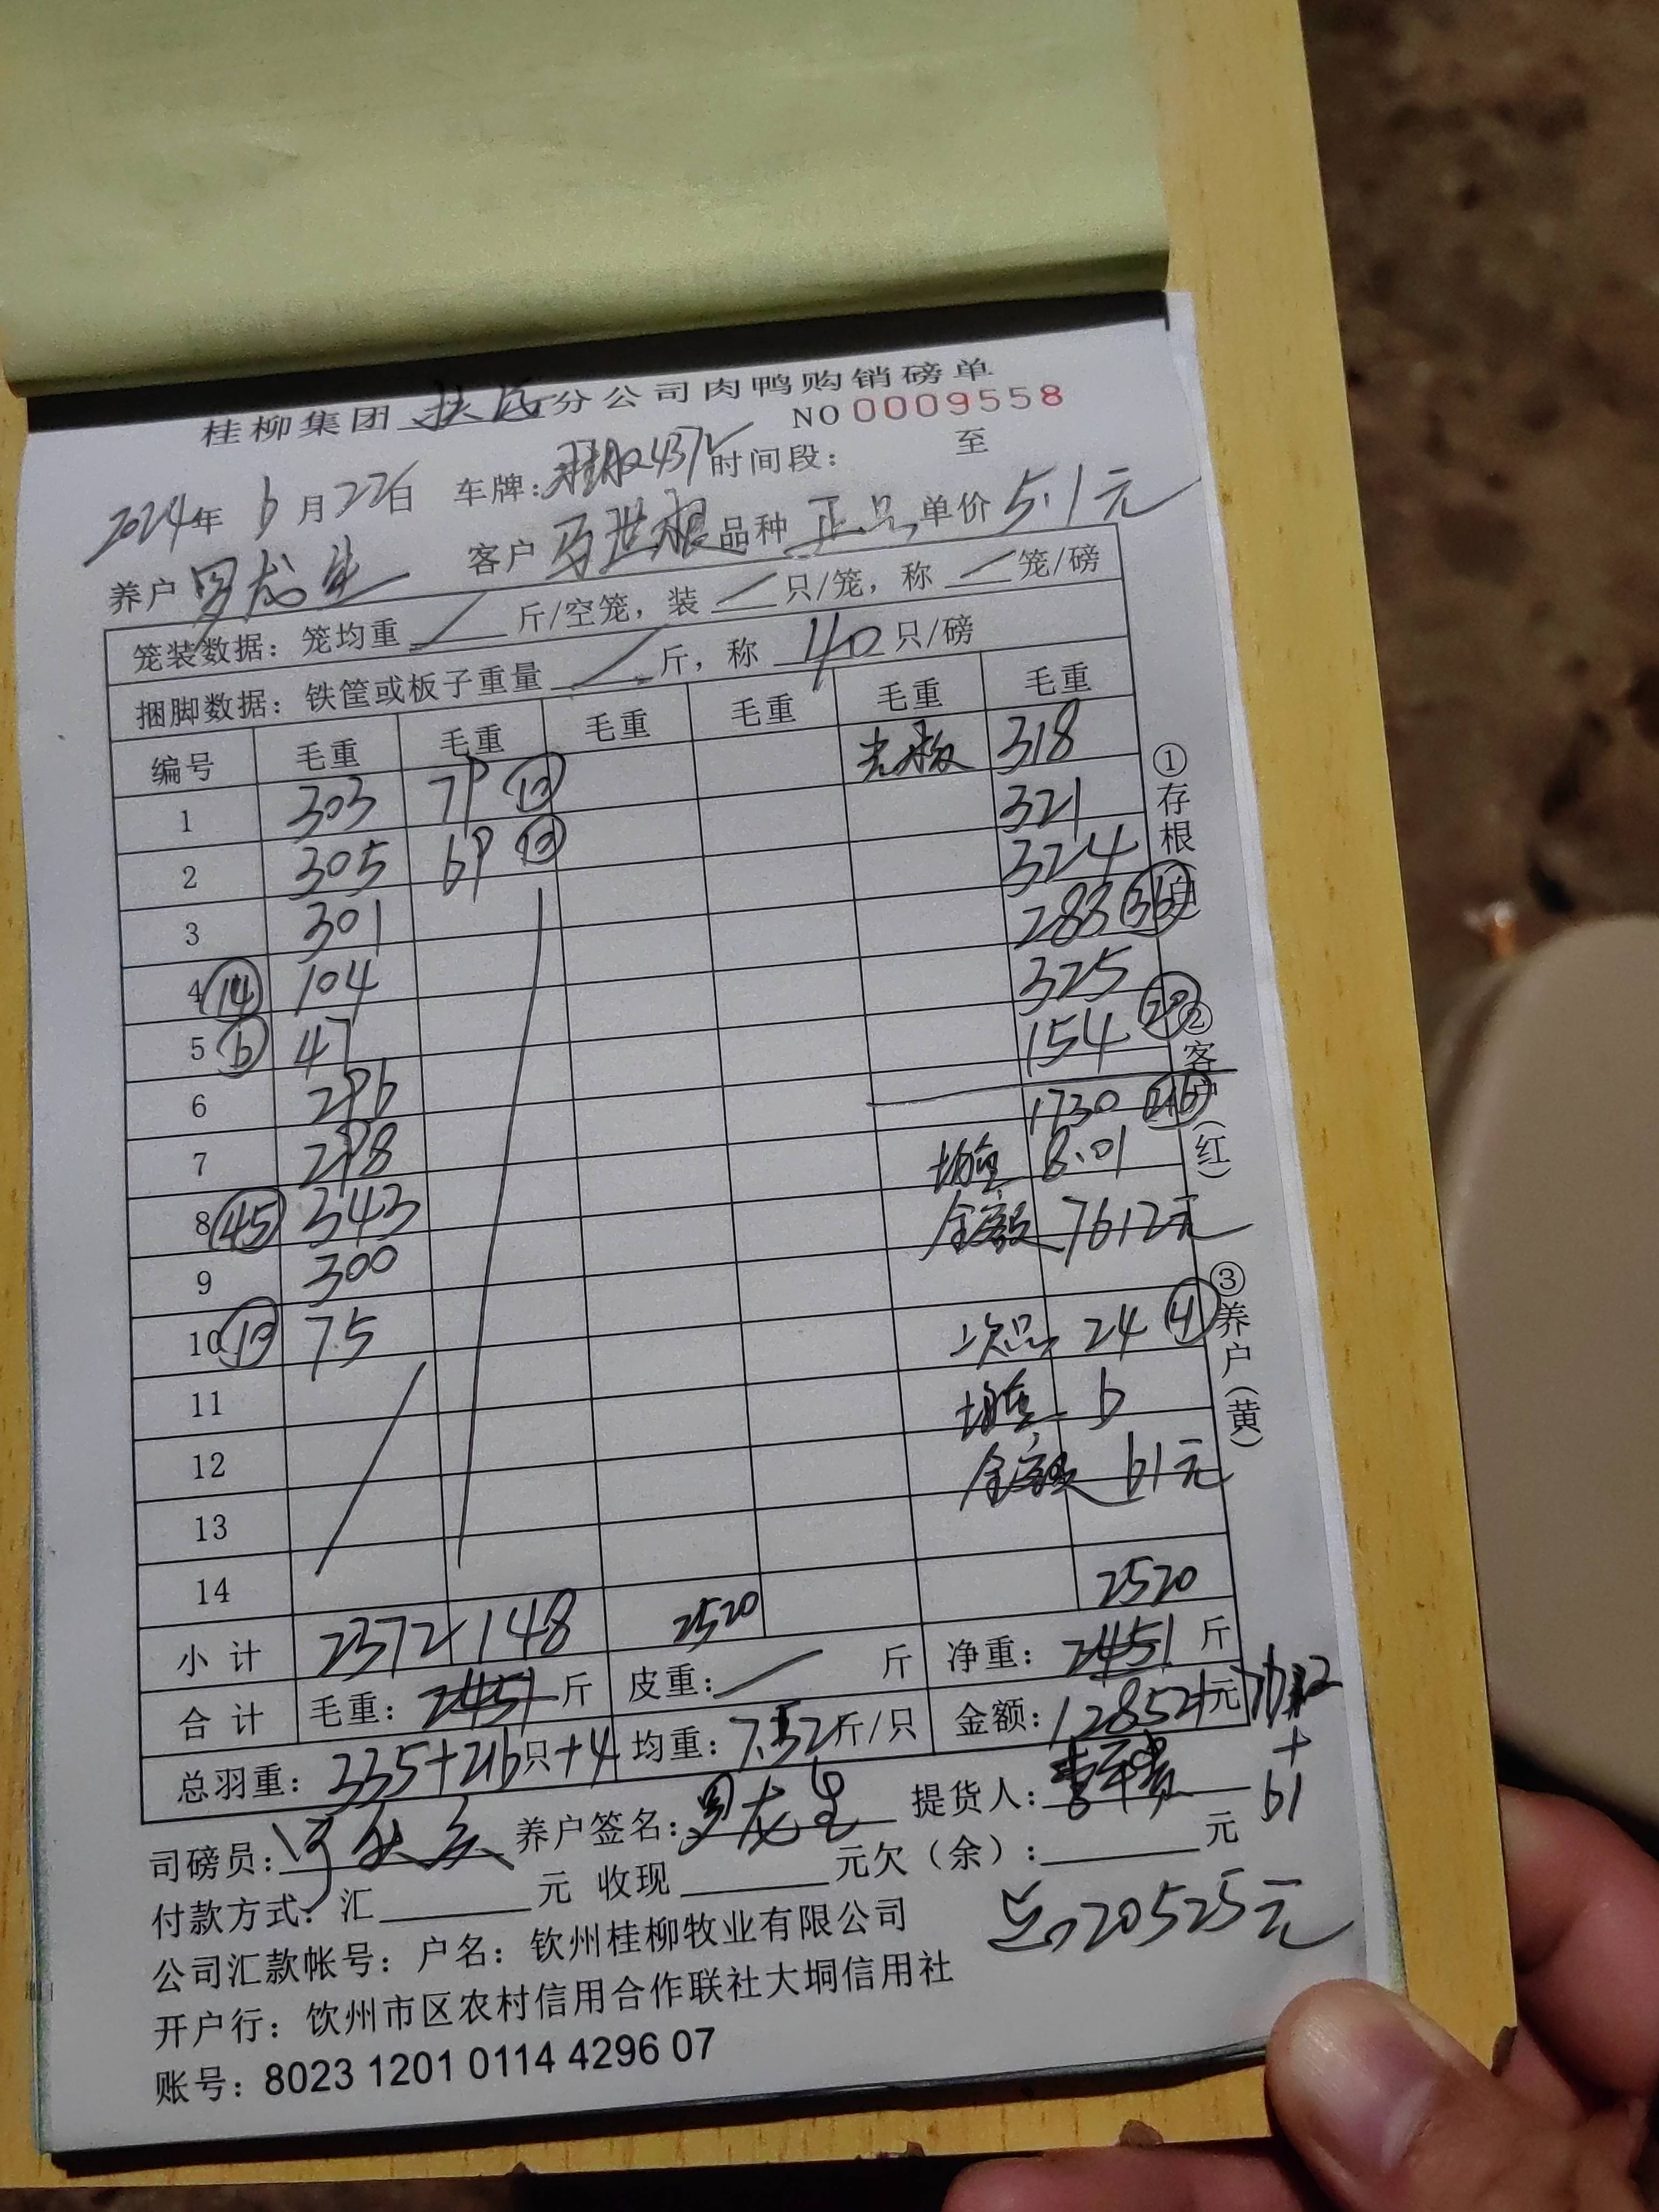 桂柳集团 扶绥 分公司肉鸭购销磅单
NO 0009558
2024年 6月22日 车牌: 时间段: 至
养户 罗龙生 客户 马世根 品种 正品 单价 5.1元
笼装数据: 笼均重 / 斤/空笼, 装 / 只/笼, 称 / 笼/磅
捆脚数据: 铁筐或板子重量 / 斤, 称 40 只/磅
编号 毛重 毛重 毛重 毛重 毛重 毛重
1 303 79 ⑩ 光板 318
2 305 69 ⑩ 321
3 301 324
4 ⑭ 104 283 ㊱
5 ⑥ 47 325
6 296 154 ⑳
7 298 1730 216
8 ㊺ 343 均重 8.01
9 300 金额 7612元
10 ⑩ 75
11 次品 24 ④
12 均重 6
13 金额 61元
14
小计 2372 148 2520 2520
合计 毛重: 2451 斤 皮重: / 斤 净重: 2451 斤
总羽重: 335+216只+4 均重: 7.52斤/只 金额: 12852元 7612
+
61
司磅员: 养户签名: 罗龙生 提货人:
付款方式: 汇 元 收现 元欠(余): 元
总20525元
公司汇款帐号: 户名: 钦州桂柳牧业有限公司
开户行: 钦州市区农村信用合作联社大垌信用社
账号: 8023 1201 0114 4296 07
①存根(白)
②客户(红)
③养户(黄)